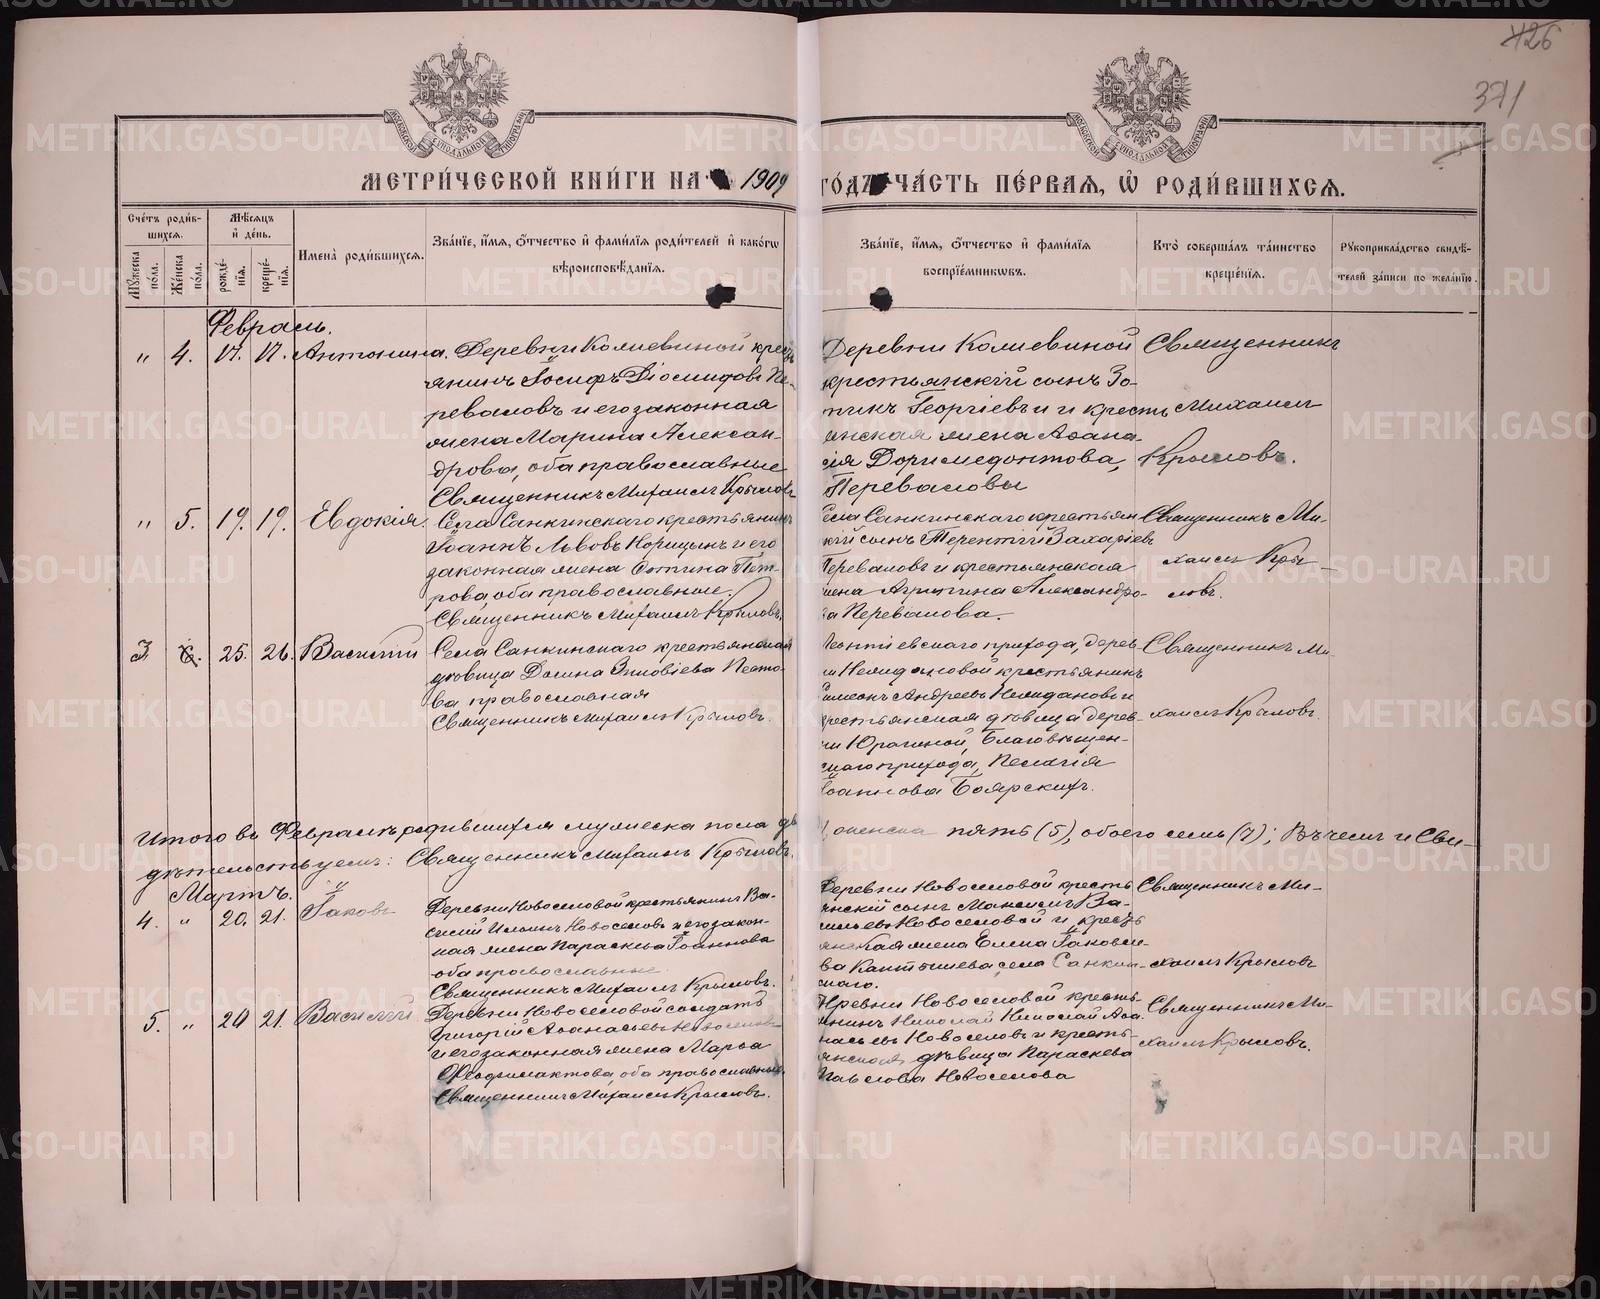 426
371
МЕТРИ́ЧЕСКОЙ КНИ́ГИ НА 1909 ГО́ДЪ ЧА́СТЬ ПЕ́РВАЯ, Ѡ҆ РОДИ́ВШИХСЯ.
Сче́тъ роди́в-
шихся.
Мꙋ́жеска по́ла.
Же́нска по́ла.
Мѣ́сяцъ
и҆ де́нь.
рожде́-
нїя.
креще́-
нїя.
И҆мена̀ роди́вшихся.
Зва́нїе, и҆́мя, ѻ҆́тчество и҆ фами́лїя роди́телей и҆ како́гѡ
вѣроисповѣ́данїя.
Зва́нїе, и҆́мя, ѻ҆́тчество и҆ фами́лїя
воспрїе́мникѡвъ.
Кто̀ соверша́лъ та́инство
креще́нїя.
Рꙋкоприкла́дство свидѣ́-
телей за́писи по жела́нїю.
Февраль.
" 4. 17. 17. Антонина.
Деревни Колмевиной крестъ
янинъ Іосифъ Діомидовъ Пе-
реваловъ и его законная
жена Марина Алексан-
дрова, оба православные
Священникъ Михаилъ Крыловъ
Деревни Колмевиной
крестьянскій сынъ Зо-
тикъ Георгіевъ и кресть
янская жена Афана-
сія Доримедонтова,
Переваловы
Священникъ
Михаилъ
Крыловъ.
" 5. 19. 19. Евдокія.
Села Санкинскаго крестьянинъ
Іоаннъ Львовъ Корицынъ и его
законная жена Фотина Пет-
рова, оба православные.
Священникъ Михаилъ Крыловъ.
Села Санкинскаго крестьян
скій сынъ Терентій Захаріевъ
Переваловъ и крестьянская
жена Агрипина Александро-
ва Перевалова.
Священникъ Ми-
хаилъ Кры-
ловъ.
3. 6. 25. 26. Василій
Села Санкинскаго крестьянская
дѣвица Домна Зиновіева
православная
Священникъ Михаилъ Крыловъ.
Леонтіевскаго прихода, дерев
ни Нелидановой крестьянинъ
Симеонъ Андреевъ Нелидановъ и
крестьянская дѣвица дерев-
ни Юрагиной, Благовѣщен-
скаго прихода, Пелагія
Іоаннова Боярскихъ.
Священникъ Ми-
хаилъ Крыловъ.
Итого въ Февралѣ родившихся мужеска пола два, женска пять (5), обоего семь (7); въ чемъ и сви-
дѣтельствуемъ: Священникъ Михаилъ Крыловъ.
Мартъ.
4. " 20. 21. Іаковъ
Деревни Новоселовой крестьянинъ Ва-
силій Ильинъ Новоселовъ и его закон-
ная жена Параскева Іоаннова
оба православные
Священникъ Михаилъ Крыловъ.
Деревни Новоселовой кресть
янскій сынъ Максимъ Ва-
сильевъ Новоселовъ и крестъ
янская жена Елена Іаковле-
ва села Санкин-
скаго.
Священникъ Ми-
хаилъ Крыловъ
5. " 20 21. Василій
Деревни Новоселовой солдатъ
Григорій Афанасьевъ Новоселовъ
и его законная жена Марѳа
оба православные
Священникъ Михаилъ Крыловъ.
Деревни Новоселовой кресть-
янинъ Николай Николай Афа-
насьевъ Новоселовъ и кресть-
янская дѣвица Параскева
Павлова Новоселова
Священникъ Ми-
хаилъ Крыловъ.
METRIKI.GASO-URAL.RU